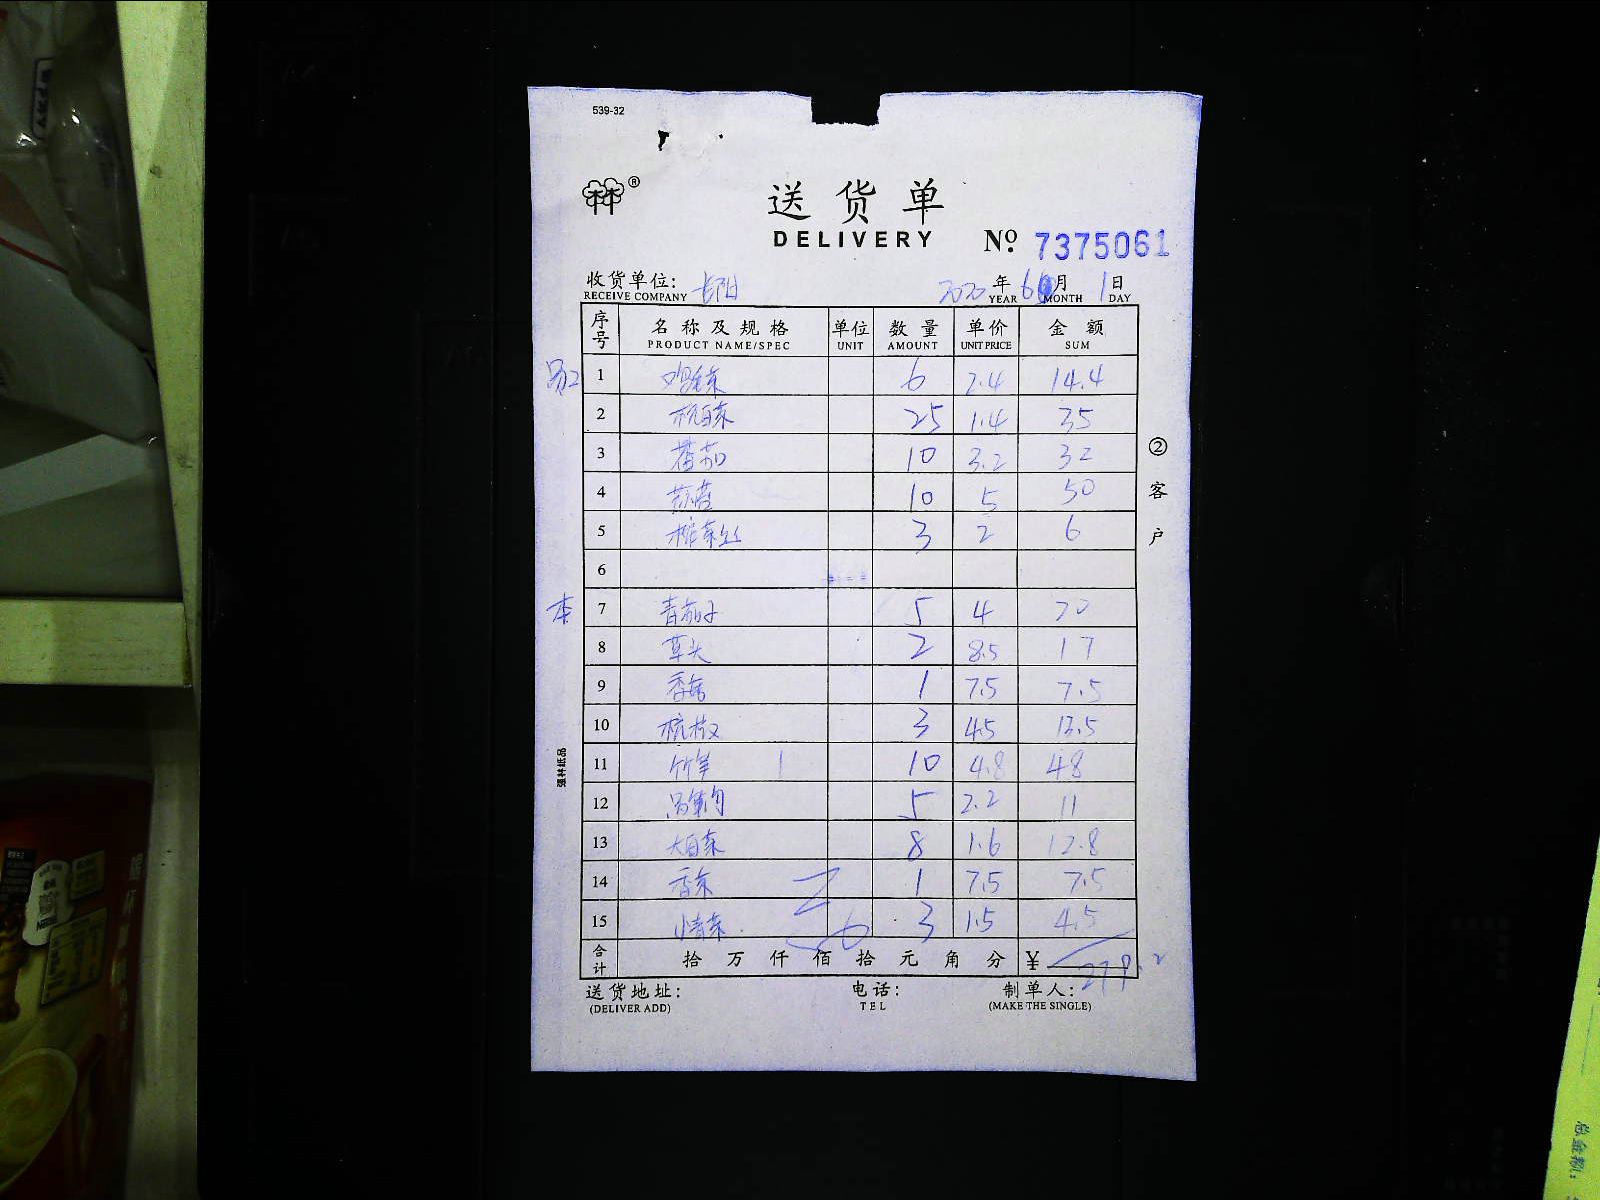 539-32
林®
送货单
DELIVERY № 7375061
收货单位: 长阳 2020年 6月 1日
RECEIVE COMPANY YEAR MONTH DAY
序号 名称及规格 单位 数量 单价 金额
PRODUCT NAME/SPEC UNIT AMOUNT UNIT PRICE SUM
1 6 2.4 14.4
2 杭白菜 25 1.4 35
3 番茄 10 3.2 32
4 10 5 50
5 榨菜丝 3 2 6
6
本 7 青茄子 5 4 20
8 草头 2 8.5 17
9 香菇 1 7.5 7.5
10 杭椒 3 4.5 13.5
11 10 4.8 48
12 5 2.2 11
13 大白菜 8 1.6 12.8
14 香菜 1 7.5 7.5
15 小青菜 3 1.5 4.5
合计 拾万仟佰拾元角分 ¥ 279.2
送货地址: 电话: 制单人:
(DELIVER ADD) TEL (MAKE THE SINGLE)
②客户
强林纸品